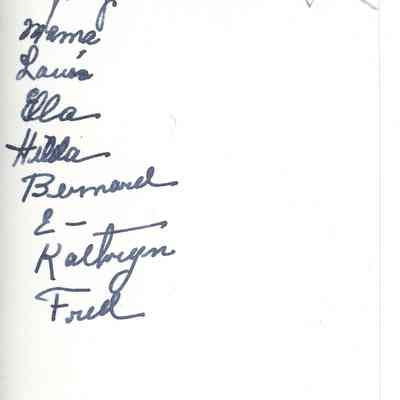 Mama
Louis
Ella
Hilda
Bernard
E -
Kathryn
Fred